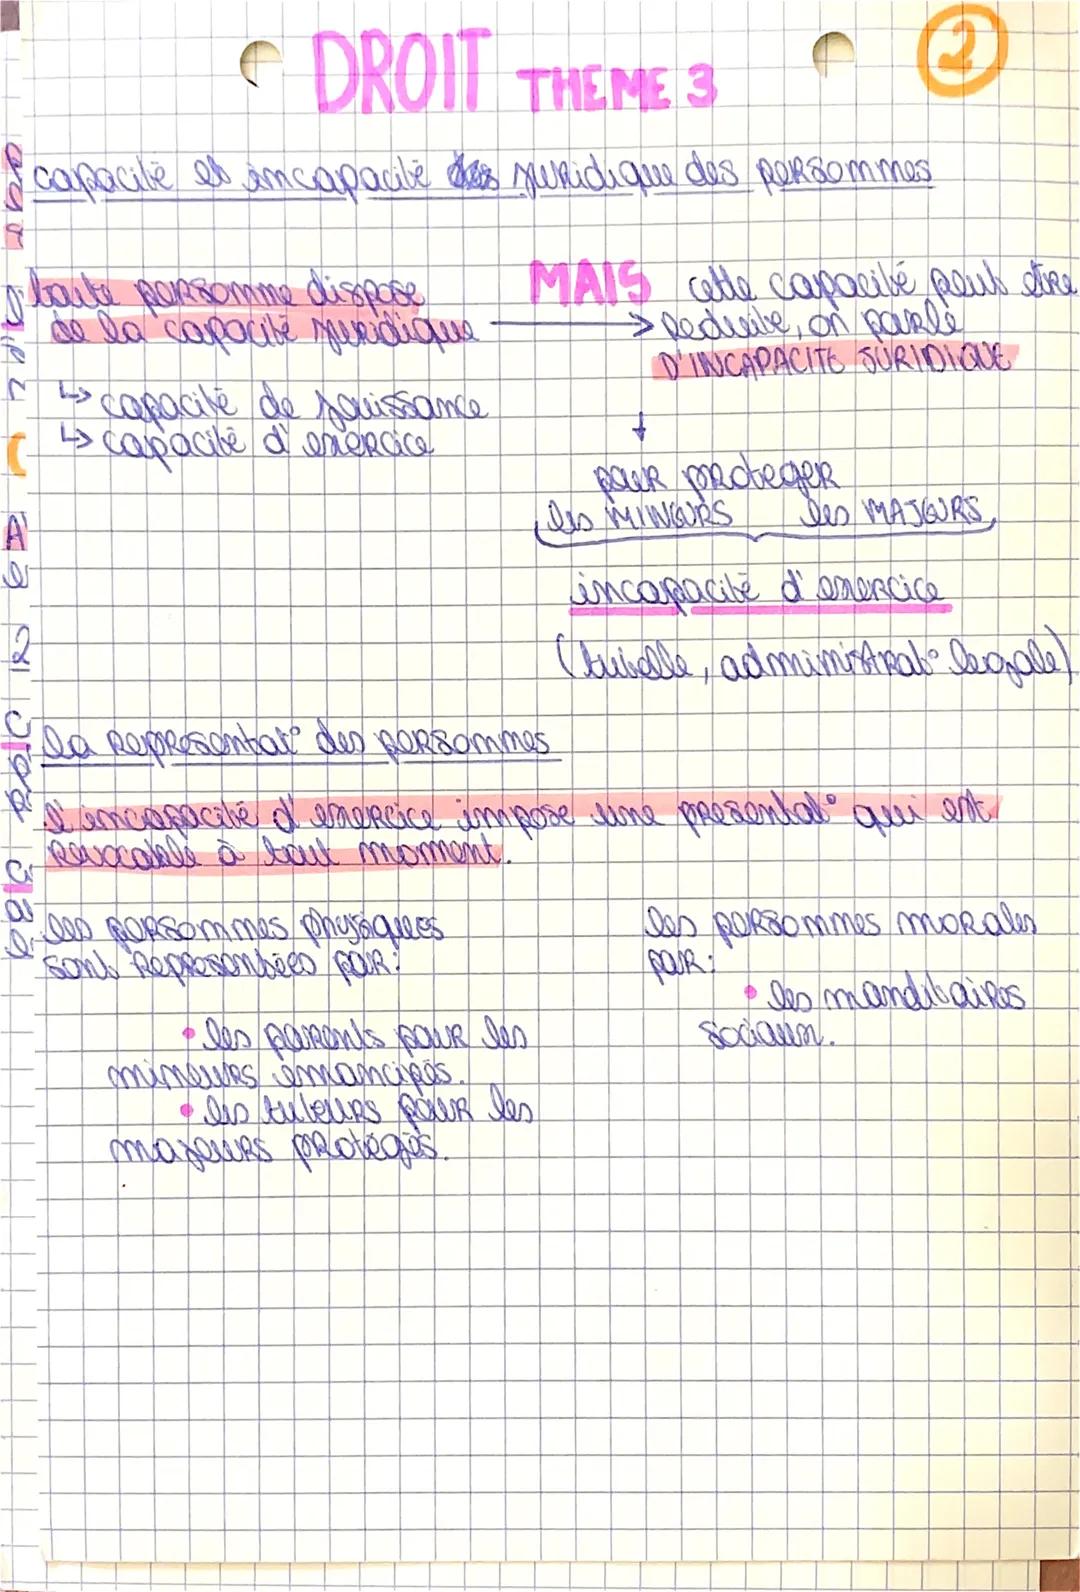 DROIT THEME 3
2
capacité et incapacité des juridique des personnes
toute personne dispose
de la capacité juridique
↳ capacité de jouissance
↳ capacité d'exercice
MAIS cette capacité peut être
réduite, on parle
D'INCAPACITE JURIDIQUE
pour proteger
les MINEURS les MAJEURS
incapacité d'exercice
(tutelle, administrat° légale)
la représentat° des personnes
l'incapacité d'exercice impose une présentat° qui est
révocable à tout moment.
les personnes physiques
sont représentées par:
• les parents pour les
mineurs émancipés.
• les tuteurs pour les
majeurs protégés.
les personnes morales
par:
• les mandataires
sociaux.